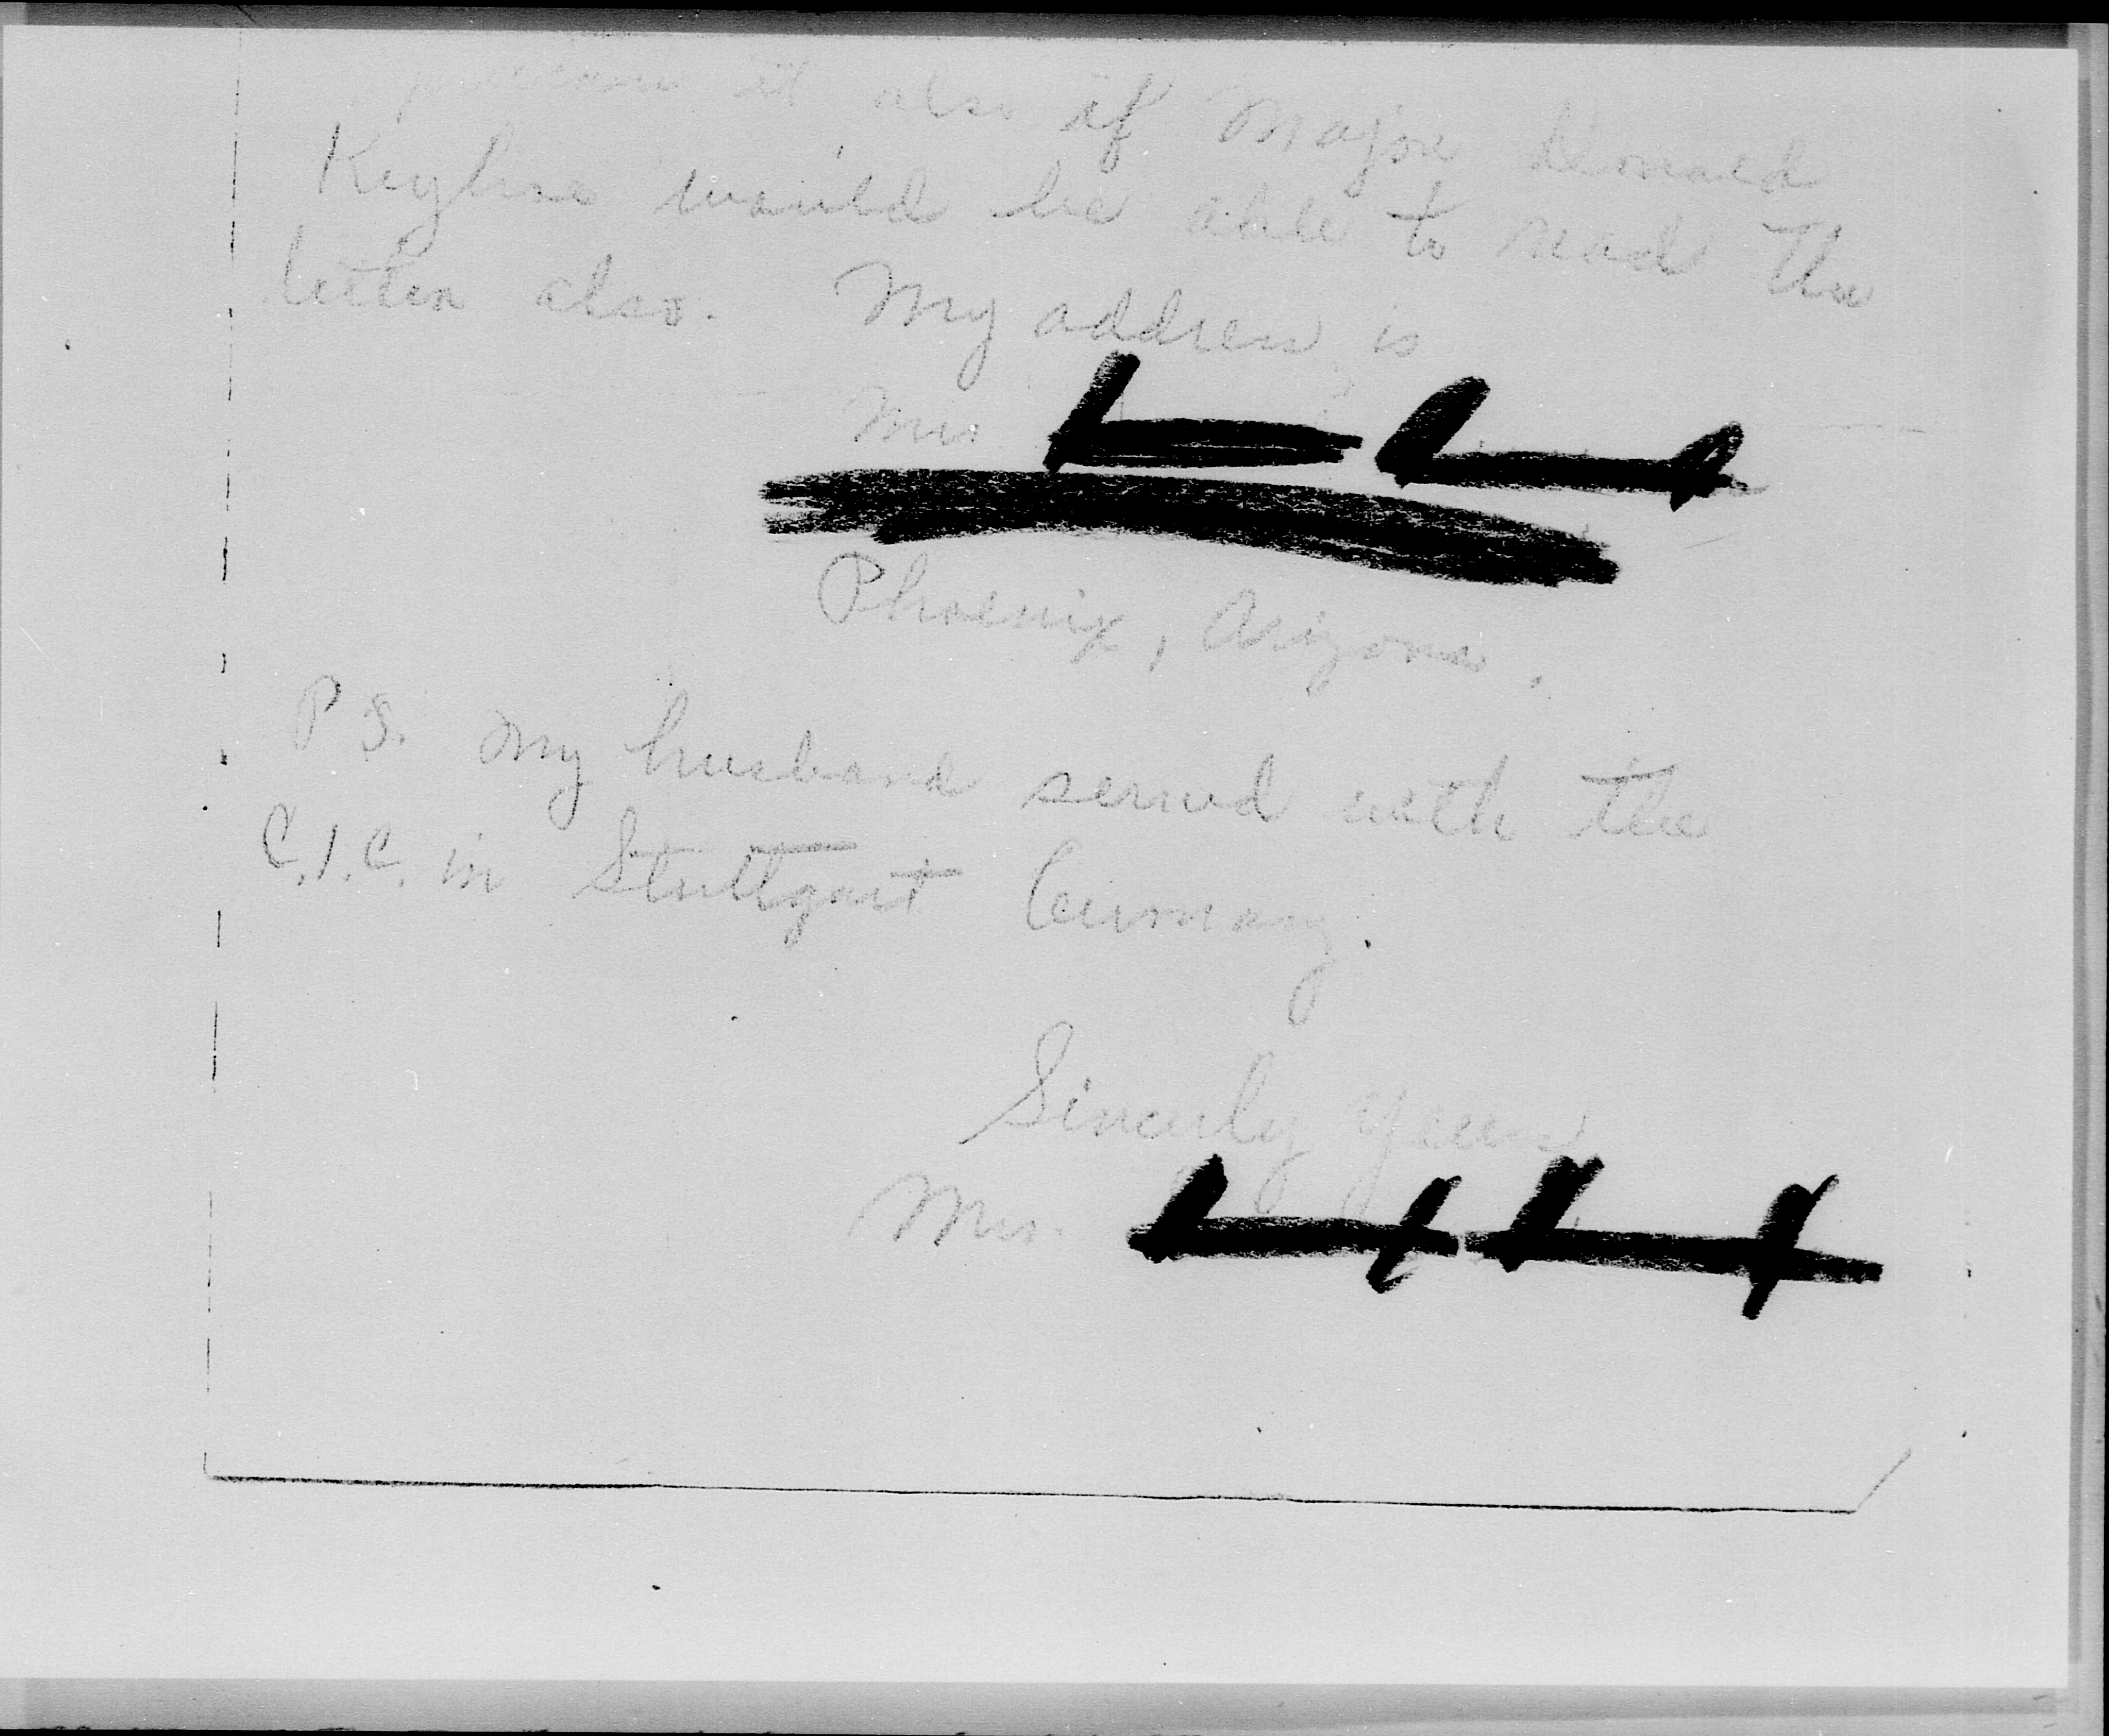 it also if Major Donald
Keyhoe would be able to read the
letter also. My address is
Mrs
Phoenix, Arizona.
P.S. My husband served with the
C.I.C. in Stuttgart Germany.
Sincerly Yours
Mrs.